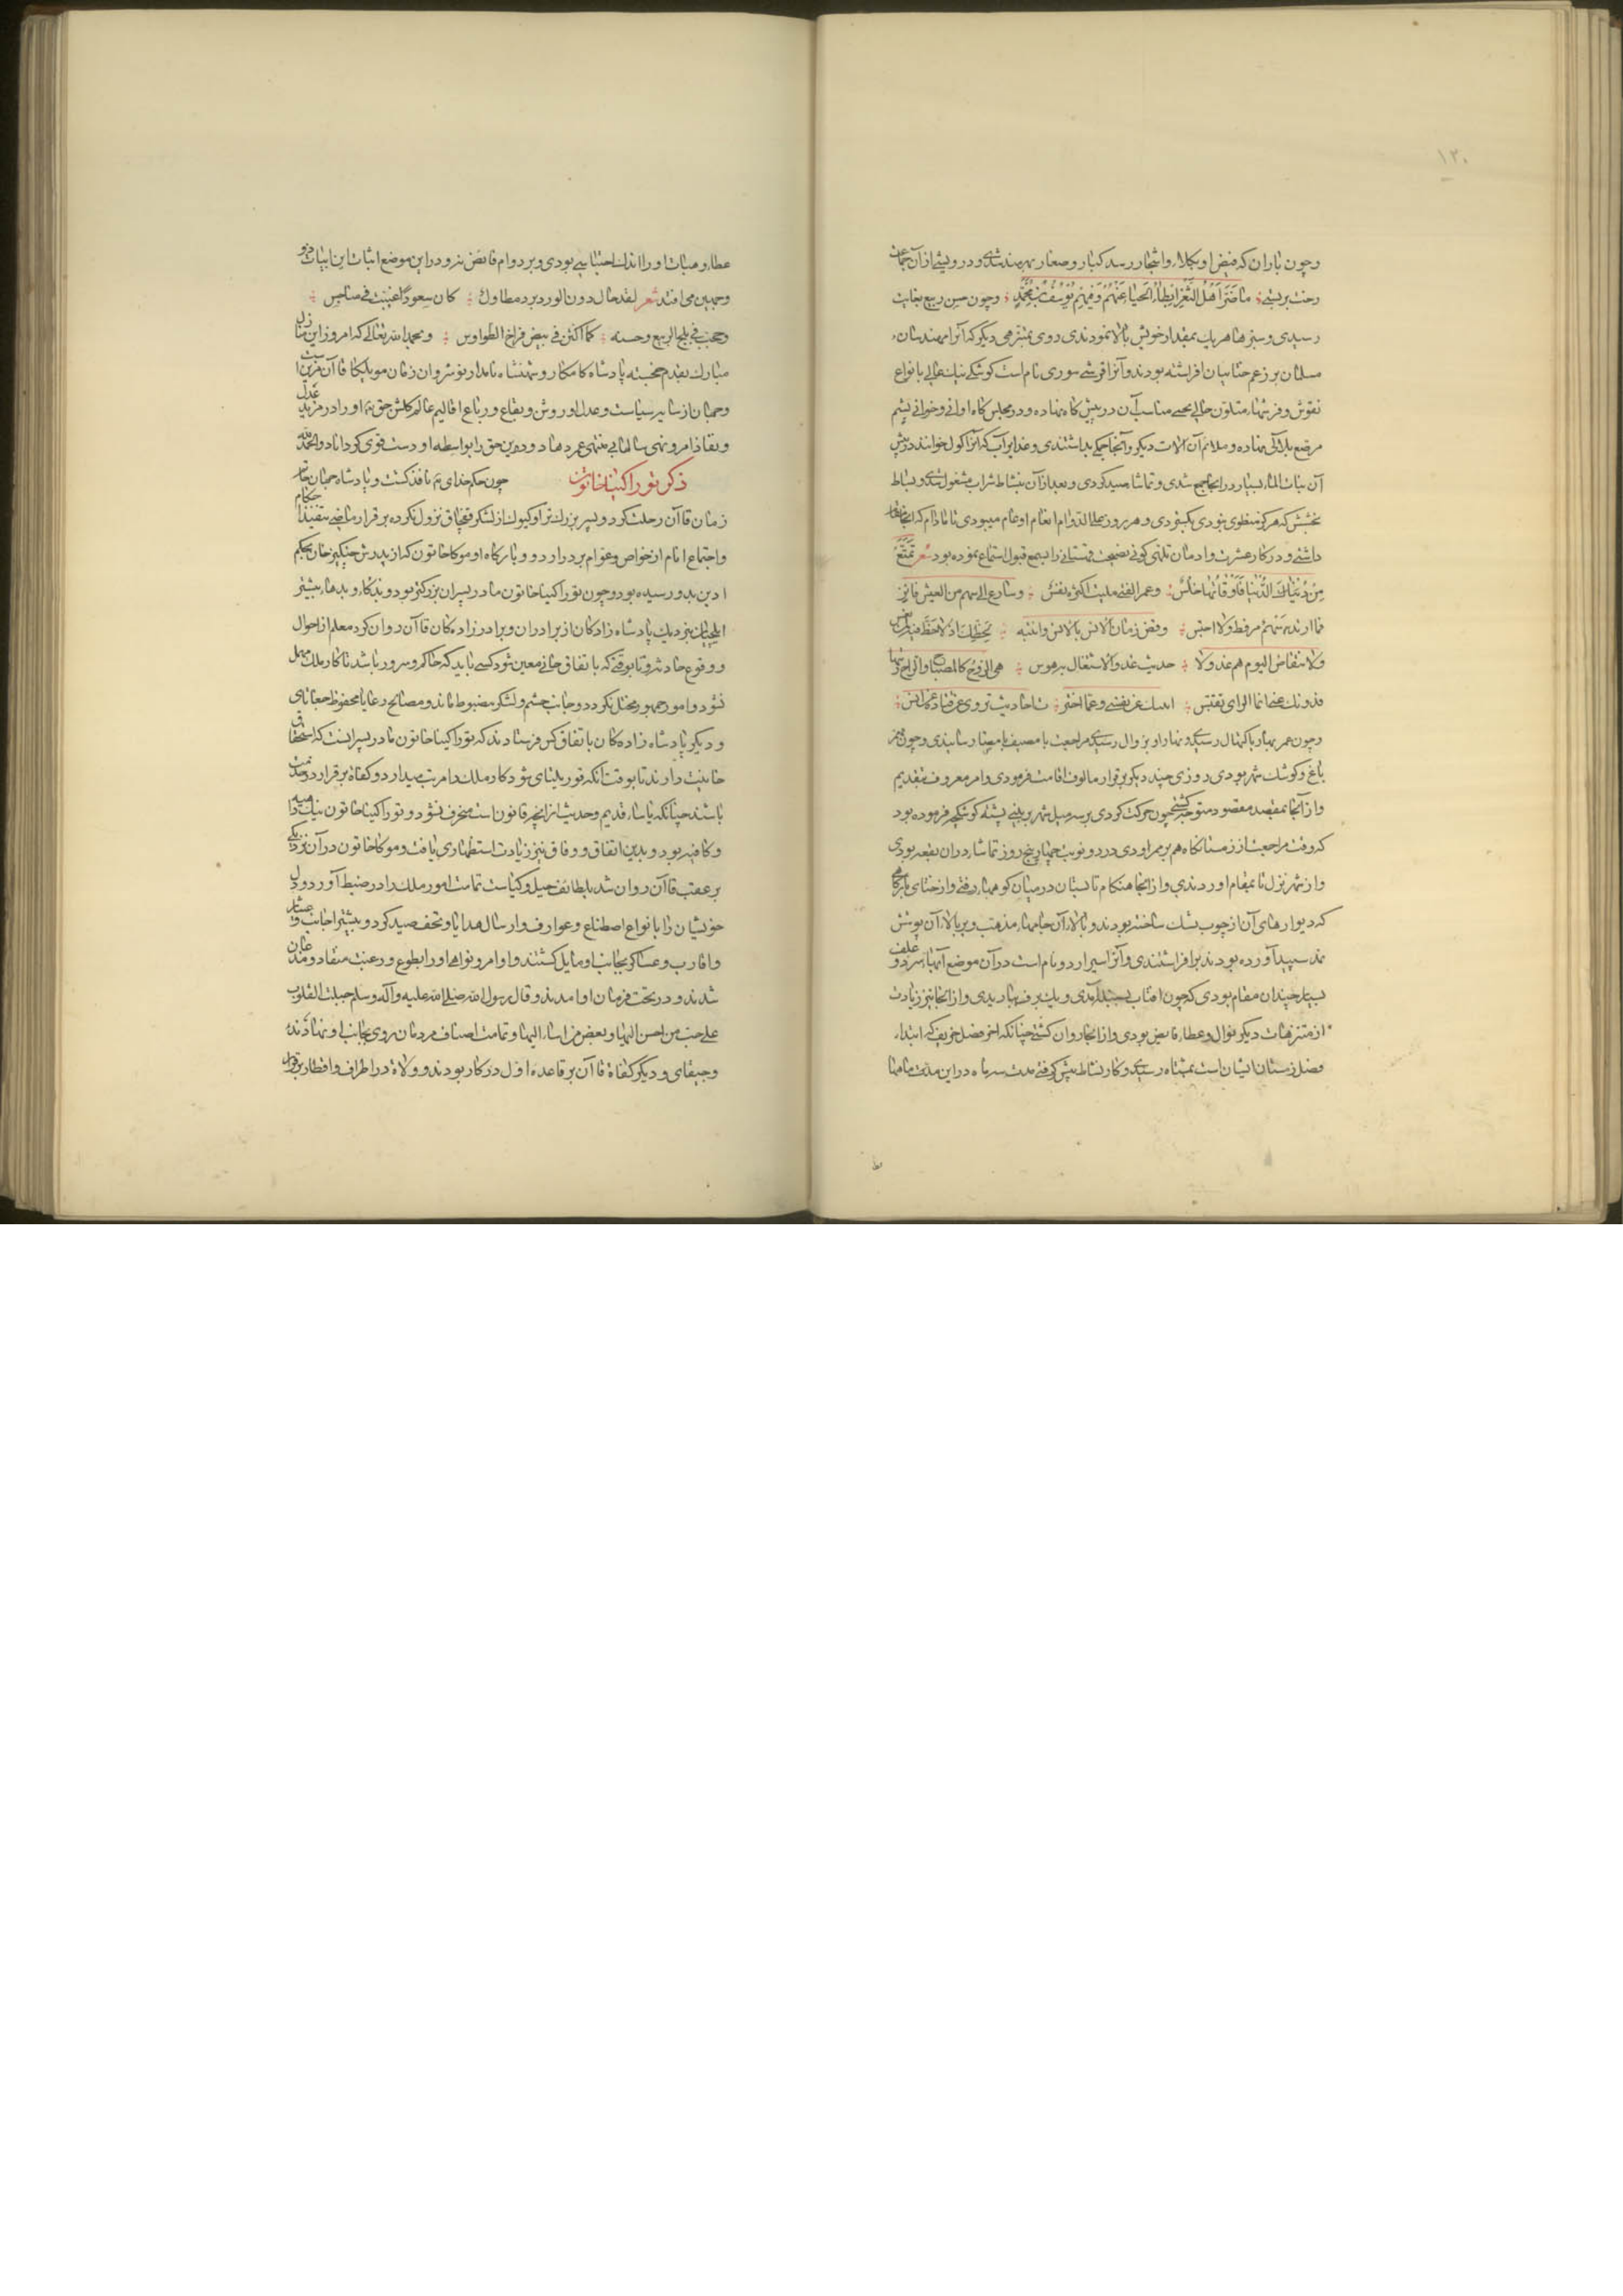 ۱۲۰
وچون باران که فیض او بکلاء واشجار رسد کبار وصغار بهره‌مند شدی ودرویشی از آن
رخت بربستی ما ضر اهل الثغر ابطاء الحیا عنهم وفیهم یوسف بن محمد وچون حسن ربیع بغایت
رسیدی وسبزها هریک بمقدار خویش بالا نمودندی روی بمتنزهی دیگر که آنرا مهندسان
مسلمان برزعم ختاییان افراشته بودند وآنرا قرشی سوری نام است کوشکی نیک عالی بانواع
نقوش وفرشهاء متلون حالی مناسب آن در پیش کاه نهاده ودر مجلس کاه اوانی وخوانی یشم
مرصع بلالی نهاده وملایم آن آلات دیگر وآنجا بداشتندی وغدایر آب که آنرا کول خوانند در پیش
آن بنات الماء بسیار در آنجا جمع شدی وتماشاء صید کردی وبعد از آن بنشاط شراب مشغول شدی وبساط
بخشش که هرکز منطوی نبودی بکستردی وهر روز علی الدوام انعام او عام میبودی تا مادام که آنجا مقام
داشتی ودر کار عشرت وادمان تلهی کوئی نصیحت قهستانی را بسمع قبول استماع نموده بود شعر تمتع
من الدنیا فاوقاتها خلس وعمر الفتی ملیت اکثره نفس وسارع الی سهم من العیش فائز
فما ارتد سهم مر قط ولا احتبس وقض زمان الانس بالانس وانتبه
ولا تتقاض الیوم هم غد ولا حدیث غد والاشتغال به هوس هی الروح کالمصباح والراح زیتها
فدونک عنها انما الرای تقتبس
وچون عمر بهار باکتهال رسیدی ونهار او بزوال رسیدی مراجعت با مصیف بامضا رسانیدی وچون ممر
باغ وکوشک شهر بودی روزی چند دیکر برقرار مالوف اقامت فرمودی وامر معروف بتقدیم
واز آنجا بمقصد مقصود متوجه کشتی چون حرکت کردی بر سه میل شهر وبینی پشته کوشکی فرموده بود
که وقت مراجعت از زمستانکاه هم بر ممر اوردی در دو نوبت چهار پنج روز تماشا در ان بقعه بودی
واز شهر نزل تا بمقام اوردندی واز آنجا هنکام تابستان در میان کوهها رفتی واز ختای بارکاهی
که دیوارهای آن از چوب شبک ساخته بودند وبالاء آن جامهاء مذهب وبر بالاء آن پوشش
نمد سپید آورده بودند برافراشتندی وآنرا سیراردو نام است در آن موضع آبهاء سرد وعلف
بسیار چندان مقام بودی که چون افتاب بسنبله آمدی ویک برف بباریدی واز آنجا نیز زیادت
از متنزهات دیکر نوال وعطا فایض بودی واز آنجا روان کشتی چنانکه اخر فصل خریف که ابتداء
فصل زمستان ایشان است بمشتاه رسیدی وکار نشاط پیش کرفتی مدت سه ماه در این مدت ماهها
عطا وهبات او را اندک احتباسی بودی وبر دوام فایض نه ودر این موضع اثبات این ابیات در
وجهین می افتد شعر لقد حال دون الورد برد مطاول کان سعودا غیبت فی مناحس
وحجب فی الثلج الربیع وحسنه کما اکتن فی بیض فراخ الطواویس وبحمدالله تعالی که امروز این منازل
مبارک بقدم خجسته پادشاه کامکار وشهنشاه نامدار نوشروان زمان مونککا قاآن مزین است
وجهان از سایه سیاست وعدل او روشن وبقاع ورباع اقالیم عالم کلشن حق تعالی او را در مزید عدل
ونفاذ امر ونهی سالهای منتهی عمر دهاد ودین حق را بواسطه او دست قوی کرداناد والحمد لله
ذکر توراکینا خاتون چون حکم خدای تع نافذ کشت وپادشاه جهان حاتم
زمان قاآن رحلت کرد وپسر بزرگتر او کیوک از لشکر قفچاق نزول نکرده برقرار ماضی تنفیذ احکام
واجتماع انام از خواص وعوام بر در اردو وبارکاه او موکا خاتون که از پدرش چنکیز خان بحکم
ادین بدو رسیده بود وچون توراکینا خاتون مادر پسران بزرکتر بود
ایلچیان بنزدیک پادشاه زادکان از برادران وبرادر زادکان قاآن روان کرد معلم از احوال
ووقوع حادثه وتا بوقتی که باتفاق خانی معین شود کسی باید که حاکم وسرور باشد تا کار ملک مهمل
نشود وامور جمهور مختل نکردد وجانب حشم ولشکر مضبوط ماند ومصالح رعایا محفوظ جغاتای
ودیکر پادشاه زادکان باتفاق کس فرستادند که توراکینا خاتون مادر پسرانست که استحقاق
خانیت دارند تا بوقت آنکه قوریلتای شود کار ملک را مرتب میدارد وکفاة برقرار در خدمت
باشند چنانکه یاساء قدیم وحدیث از آنچه قانون است منحرف نشود وتوراکینا خاتون نیک داهیه
وکافیه بود وبدین اتفاق ووفاق نیز زیادت استظهاری یافت وموکا خاتون در آن نزدیکی
بر عقب قاآن روان شد بلطائف حیل وکیاست تمامت امور ملک را در ضبط آورد ودل
خویشان را بانواع اصطناع وعوارف وارسال هدایا وتحف صید کرد وبیشتر اجانب وعشایر
واقارب وعساکر بجانب او مایل کشتند واوامر ونواهی او را بطوع ورغبت منقاد ومذعان
شدند ودر تحت فرمان او امدند وقال رسول الله صلی الله علیه وآله وسلم جبلت القلوب
علی حب من احسن الیها وبغض من اساء الیها وتمامت اصناف مردمان روی بجانب او نهادند
وجینقای ودیکر کفاة قاآن بر قاعده اول در کار بودند وولاة در اطراف واقطار برقرار